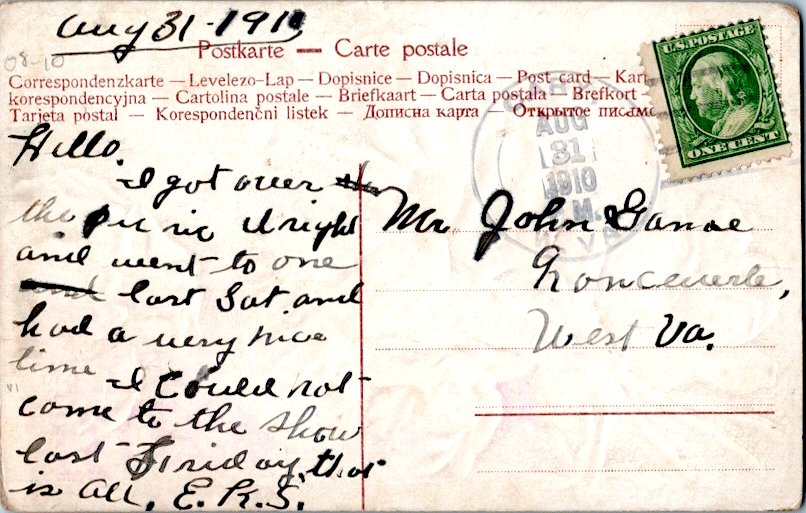 Aug 31 - 1910
08-10
Postkarte — Carte postale
Correspondenzkarte — Levelezo-Lap — Dopisnice — Dopisnica — Post card — Kart
korespondencyjna — Cartolina postale — Briefkaart — Carta postala — Brefkort —
Tarjeta postal — Korespondenční listek — Дописна карта — Открытое писамо
U.S. POSTAGE
ONE CENT
AUG
31
1910
M.
W. VA.
Hello.
I got over
the picnic alright
and went to one
and last Sat. and
had a very nice
time I could not
come to the show
last Friday, that
is all, E. R. S.
Mr. John Ganoe
Ronceverte,
West Va.